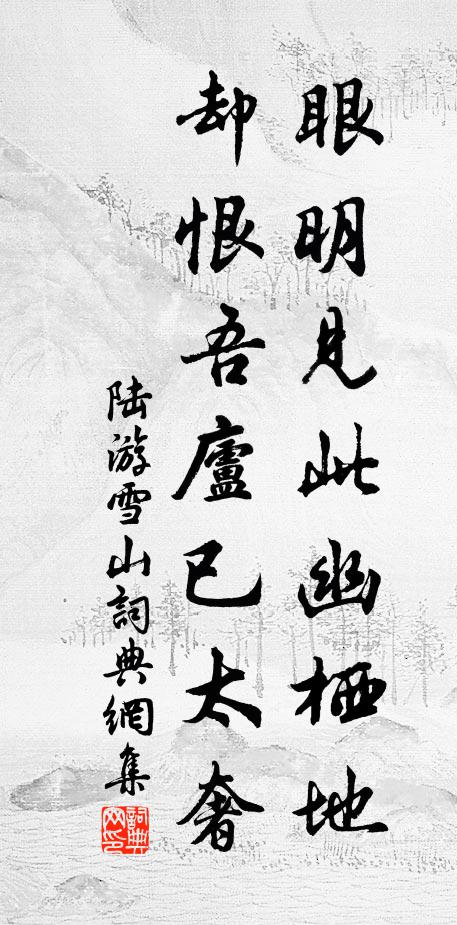 眼明見此幽栖地
却恨吾廬已太奢
陆游雪山詞典網集
詞典网印